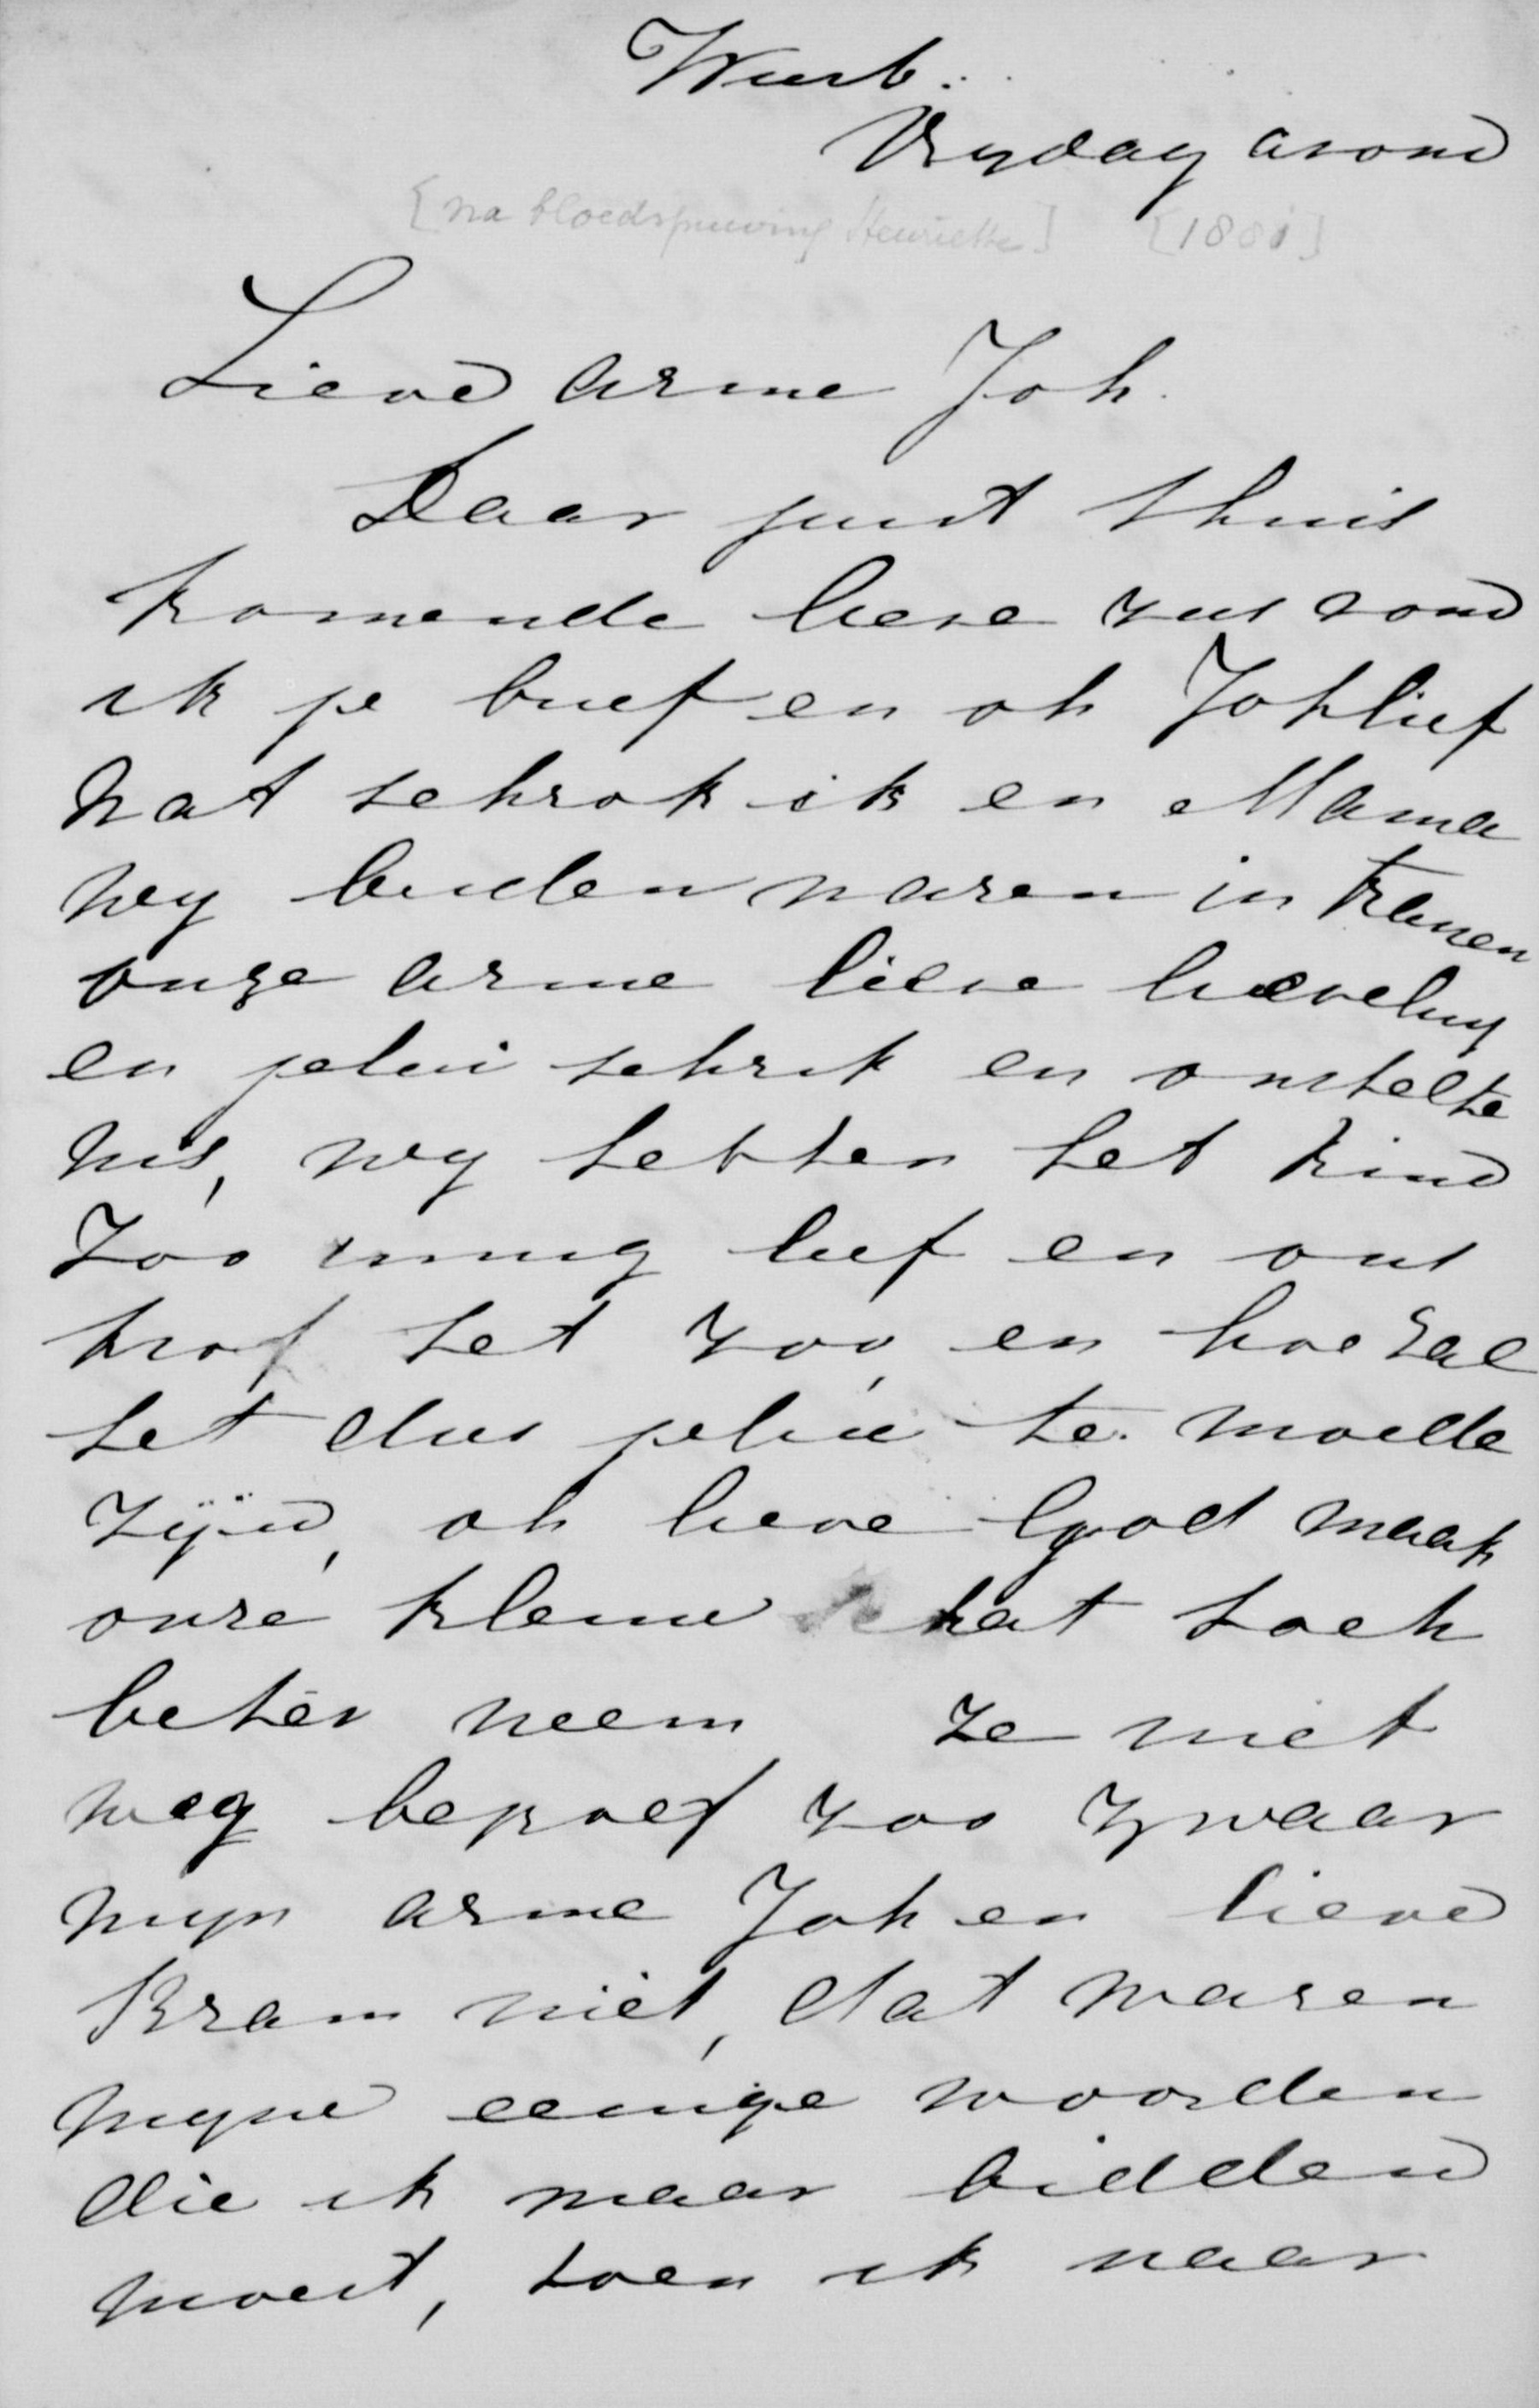 Wurb:
Vrydag avond
[na bloedspuwing Henriette] [1881]
Lieve arme Joh.
Daar juist thuis
komende lieve zus vond
ik je brief en oh Johlief
wat schrok ik en Mama
wy beiden waren in tranen
onze arme lieve lieveling
en jelui schrik en ontstelte
nis, wy hebben het kind
zoo innig lief en ons
trof het zoo, en hoe zal
het dus jelui te moede
zijn, oh lieve God maak
onze kleine schat toch
beter neem ze niet
weg beproef zoo zwaar
myn arme Joh en lieve
Bram niet, dat waren
myne eenige woorden
die ik maar bidden
moest, toen ik naar